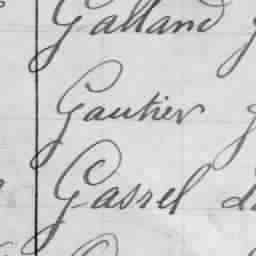 Galland
Gautier
Gassel